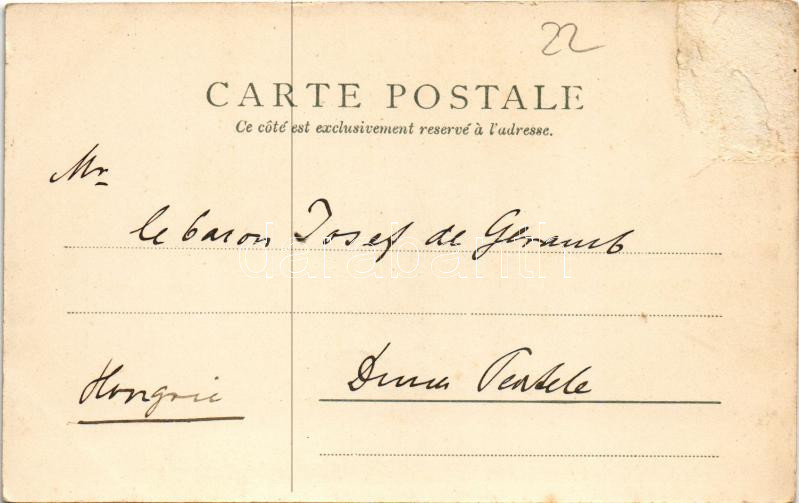 22
CARTE POSTALE
Ce côté est exclusivement reservé à l'adresse.
Mr
le baron Josef de Geramb
darabanth
Duna Pentele
Hongrie